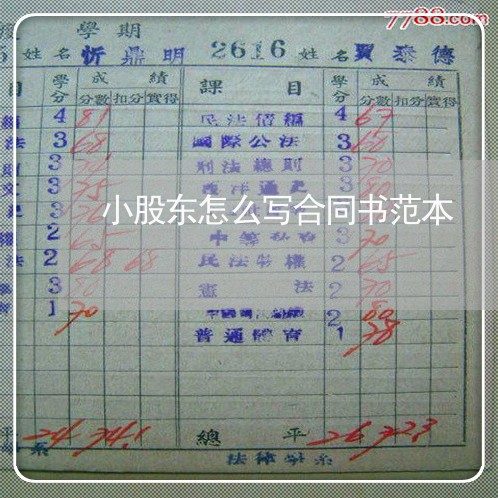 7788.com
學期
姓名 忻鼎明 2616 姓名 賈泰德
目 學分 成績 課目 學分 成績
分數 扣分 實得 分數 扣分 實得
4 81 民法債編 4 67
法 3 68 國際公法 3 60
3 刑法總則 3 70
3 75 西洋通史 3 80
小股东怎么写合同书范本
2 65 3 70
法 2 68 68 民法物權 2 65
3 80 憲法 2 70
1 70 2 80
普通體育 1 78
24 74.1 總平 26 72.3
法律學系